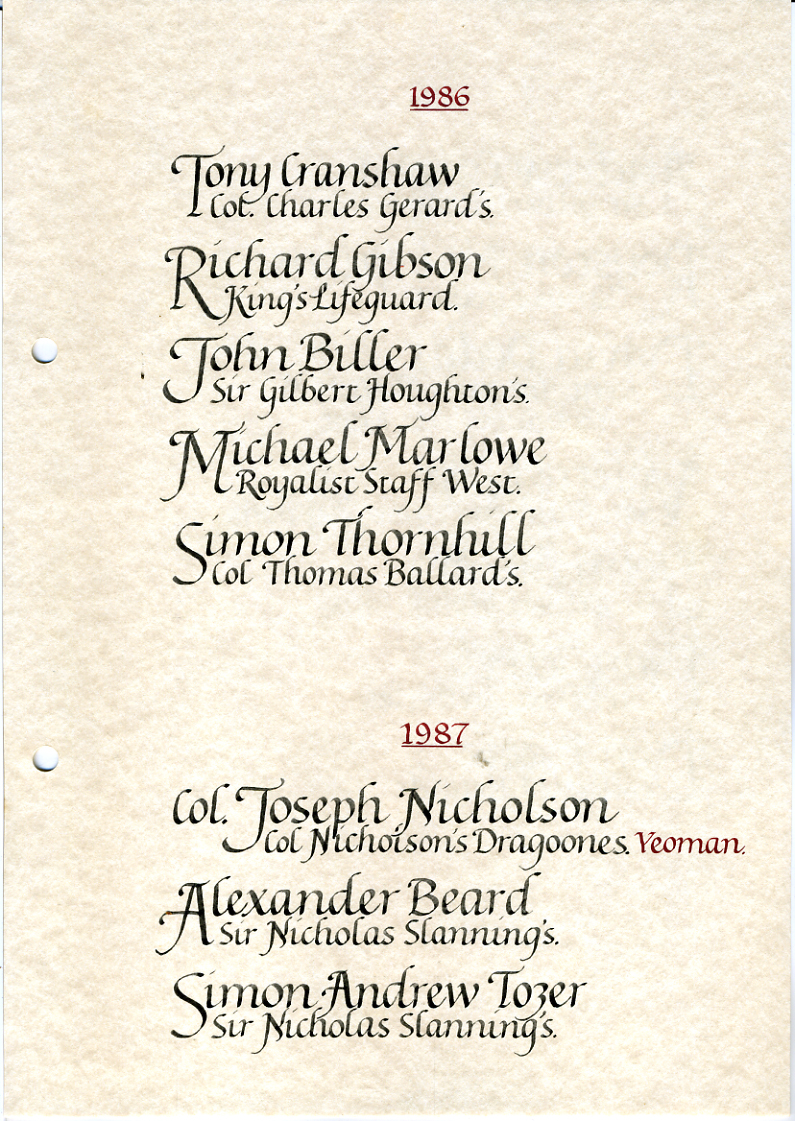 1986
Tony Cranshaw
Col. Charles Gerard's.
Richard Gibson
King's Lifeguard.
John Biller
Sir Gilbert Houghton's.
Michael Marlowe
Royalist Staff West.
Simon Thornhill
Col Thomas Ballard's.
1987
Col. Joseph Nicholson
Col Nicholson's Dragoones. Yeoman.
Alexander Beard
Sir Nicholas Slanning's.
Simon Andrew Tozer
Sir Nicholas Slanning's.